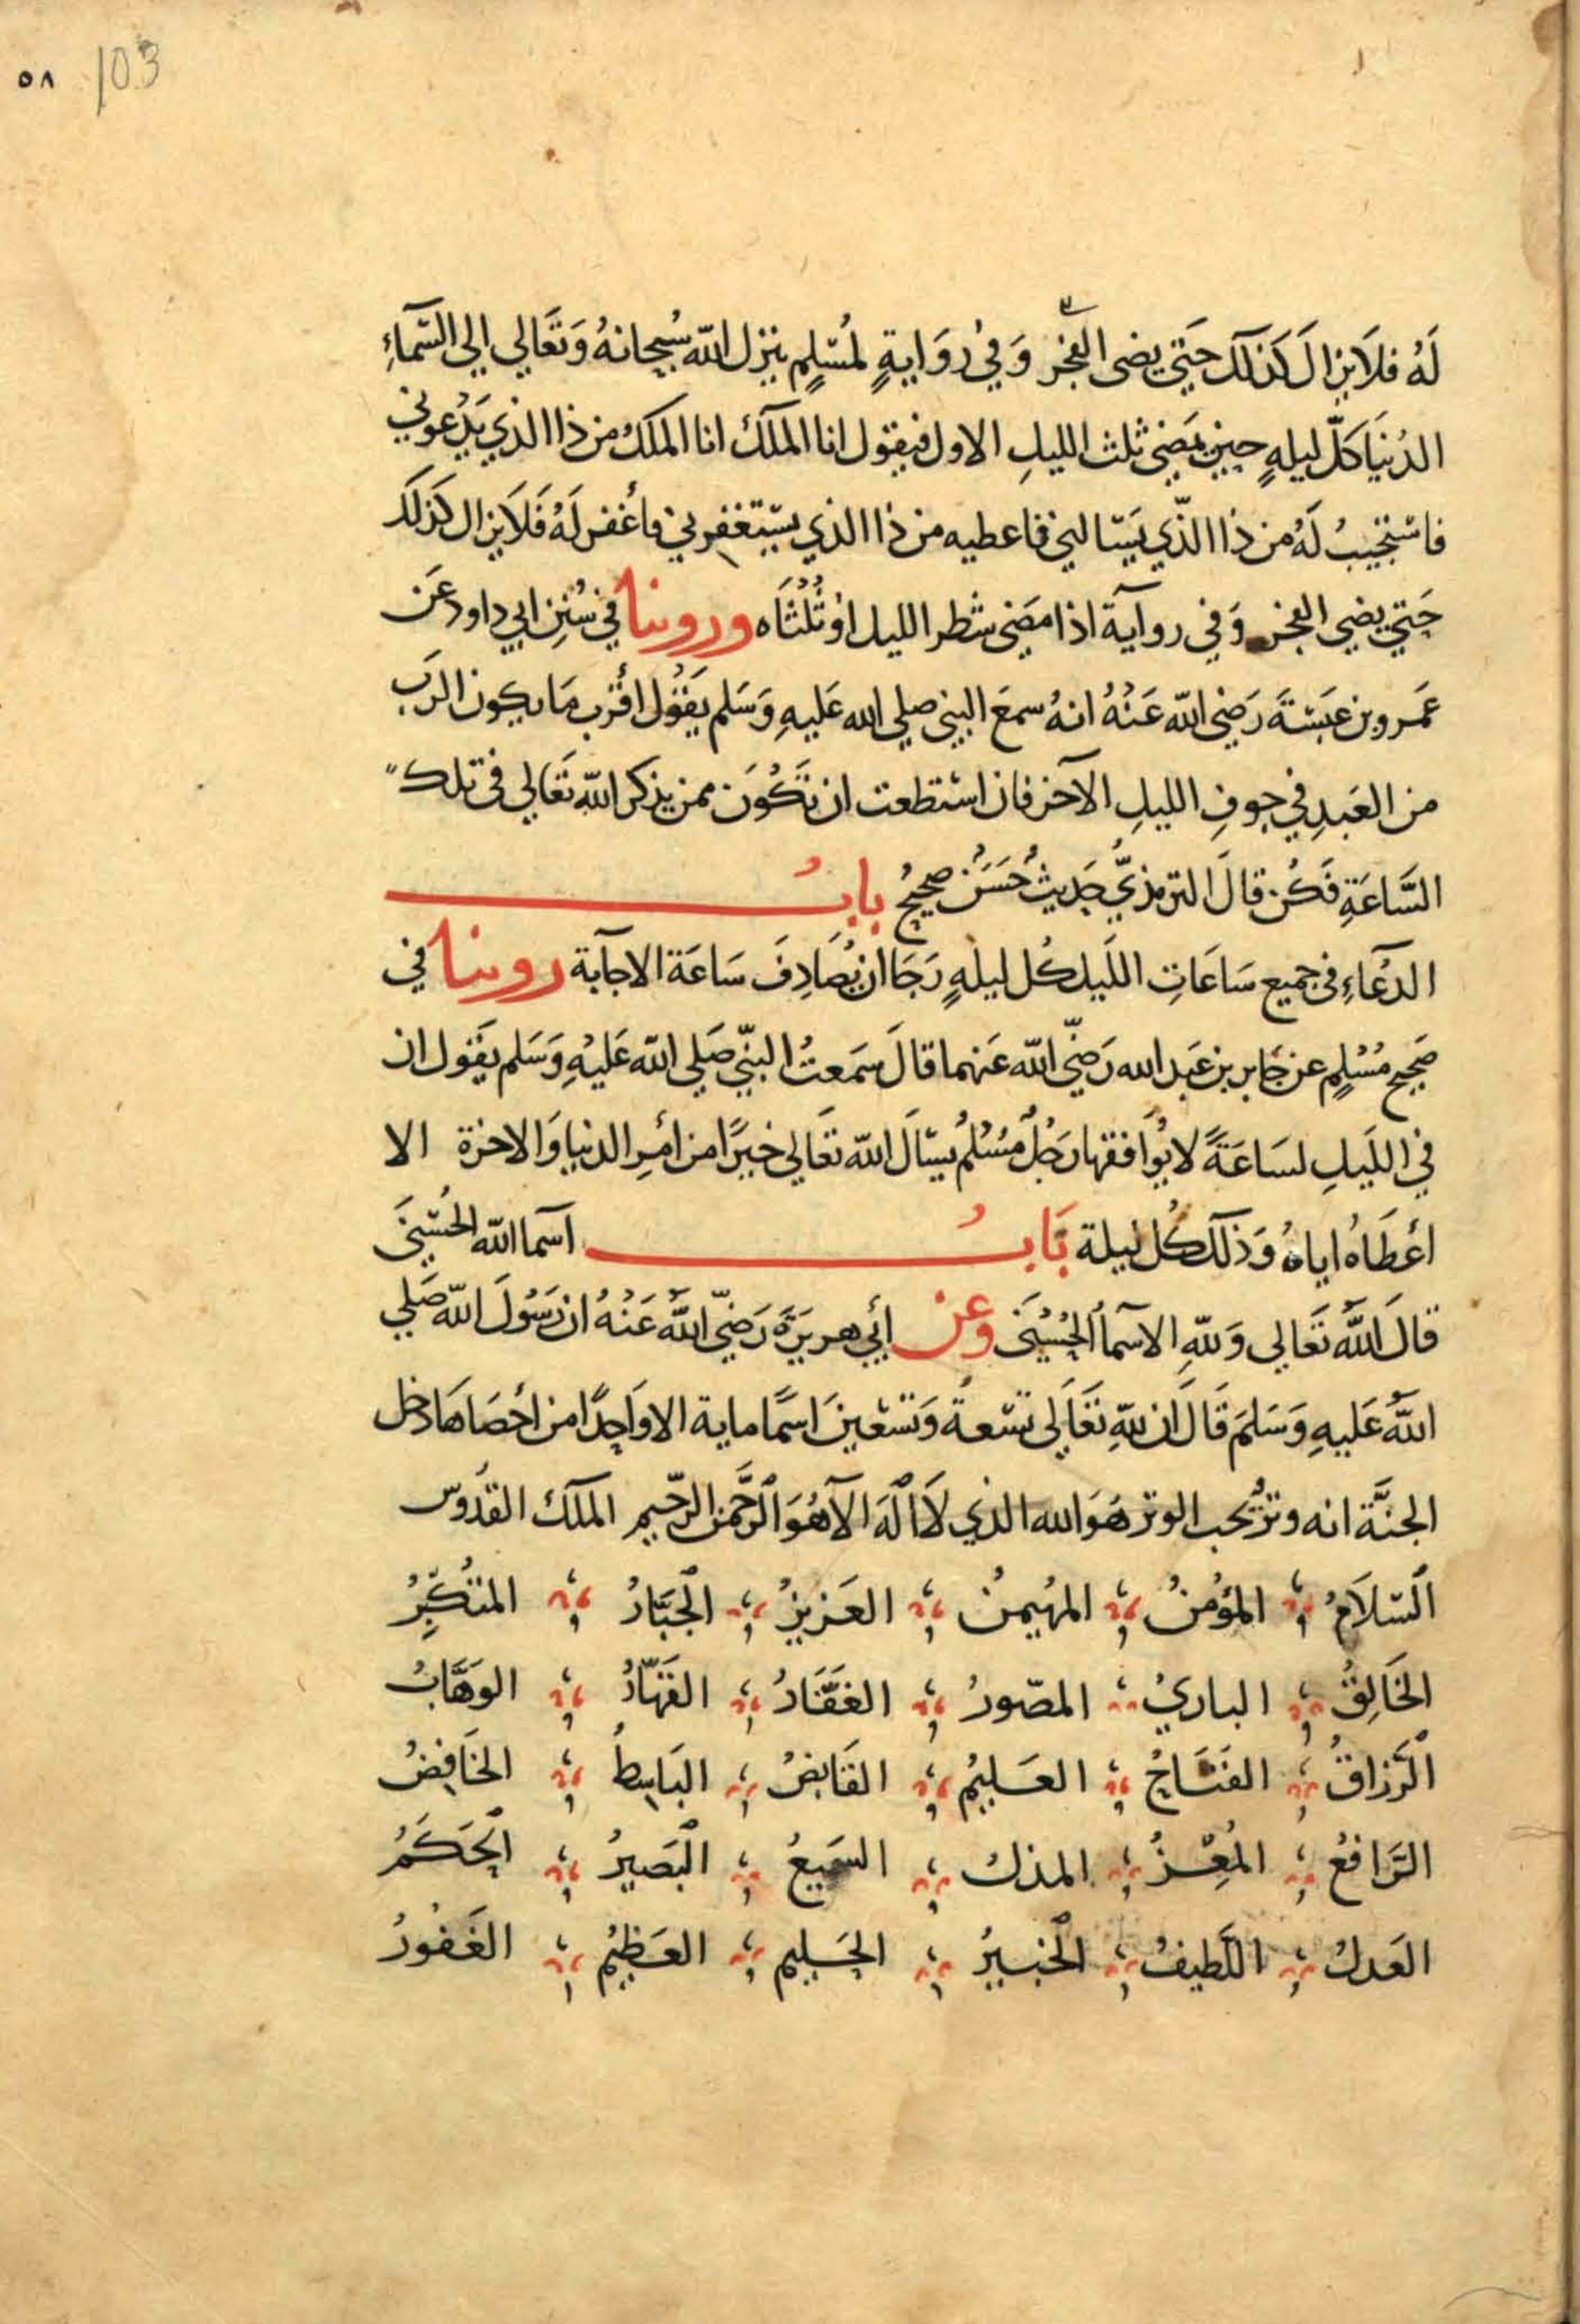 ٥٨ 103
لَهُ فلَا يزال كَذلك حَتي يضى الفجر وَفي رِوَايةٍ لمُسْلِم ينزل الله سُبحانهُ وَتعَالي الي السّمآءِ
الدُنيَا كلّ ليلهٍ حين يمَضِي ثلث الليلِ الاول فيقول انا الملك انا الملك من ذا الذي يَدْعوني
فاستجيبُ لَهُ من ذا الذّي يَسَالني فاعطيه من ذا الذي يستغفرني فأغفر لَهُ فَلَا يزال كذلك
حَتي يضي الفجر وَفي رواية اذا مضَى شطر الليل اوْ ثُلُثَاه وروينا في سُنَنِ ابي داود عَن
عَمرو بن عبَسَةَ رَضِي الله عَنْهُ انهُ سمعَ النبي صلي الله عَليهِ وَسَلم يَقُول اقْرب مَا يكون الرَب
من العَبدِ في جوفِ الليلِ الآخر فان استطعت ان تَكُونَ ممن يذكر الله تعَالي في تلك
السَّاعَةِ فكُن قالَ الترمذيُّ حَديثُ حُسَنٌ صحيحُ بابُ
الدعَآءِ في جميع سَاعَاتِ اللَيل كُل ليلهٍ رَجَا ان يُصَادِفَ سَاعَة الاجآبة روينا في
صَحيح مُسْلِمٍ عن جَابر بن عَبد الله رَضِّي الله عَنهما قالَ سَمَعتُ النبّي صَلي الله عَليْهِ وَسَلم يقَول ان
في اللَيلِ لسَاعَةً لا يُوَافقها رَجُلٌ مُسْلمُ يسَالَ الله تعَالي خيرًا من امْرِ الدنيا وَالاخرة الا
اعْطَاهُ اياهُ وَذلك كُل ليلة بَابُ اسَما الله الحُسْنَى
قالَ اللهُ تعَالي وَللهِ الاسَمآ الحُسْنَى وعن أبي هريرَة رَضِّي اللهُ عَنْهُ ان رَسُولَ الله صَلي
اللهُ عَليهِ وَسَلمَ قَالَ ان للهِ تعَالَى تسْعةً وَتسْعينَ اسمًا ماية الا وَاحِدًا من احْصَاهَا دَخل
الجنَّة انه وترُ يُحب الوتر هوَ الله الذي لآ اله الآ هُوَ الرَّحمنُ الرّحيم الملك القدُوس
السّلَامُ المؤمنُ المهيمنُ العَزيزُ الجَبَّارُ المتُكبِّرُ
الخَالِقُ الباريُ المصّورُ الغَفَّارُ القهّارُ الوهَّابُ
الَرَّزاقُ الفَتَاحُ العَليمُ القَابضُ البَاسِطُ الخَافِضُ
الرَّافعُ المُعِزُّ المذل السَميعُ البَصيرُ الحَكَمُ
العَدلُ اللّطيفُ الخَبيرُ الحَليم العَظيمُ الغَفورُ